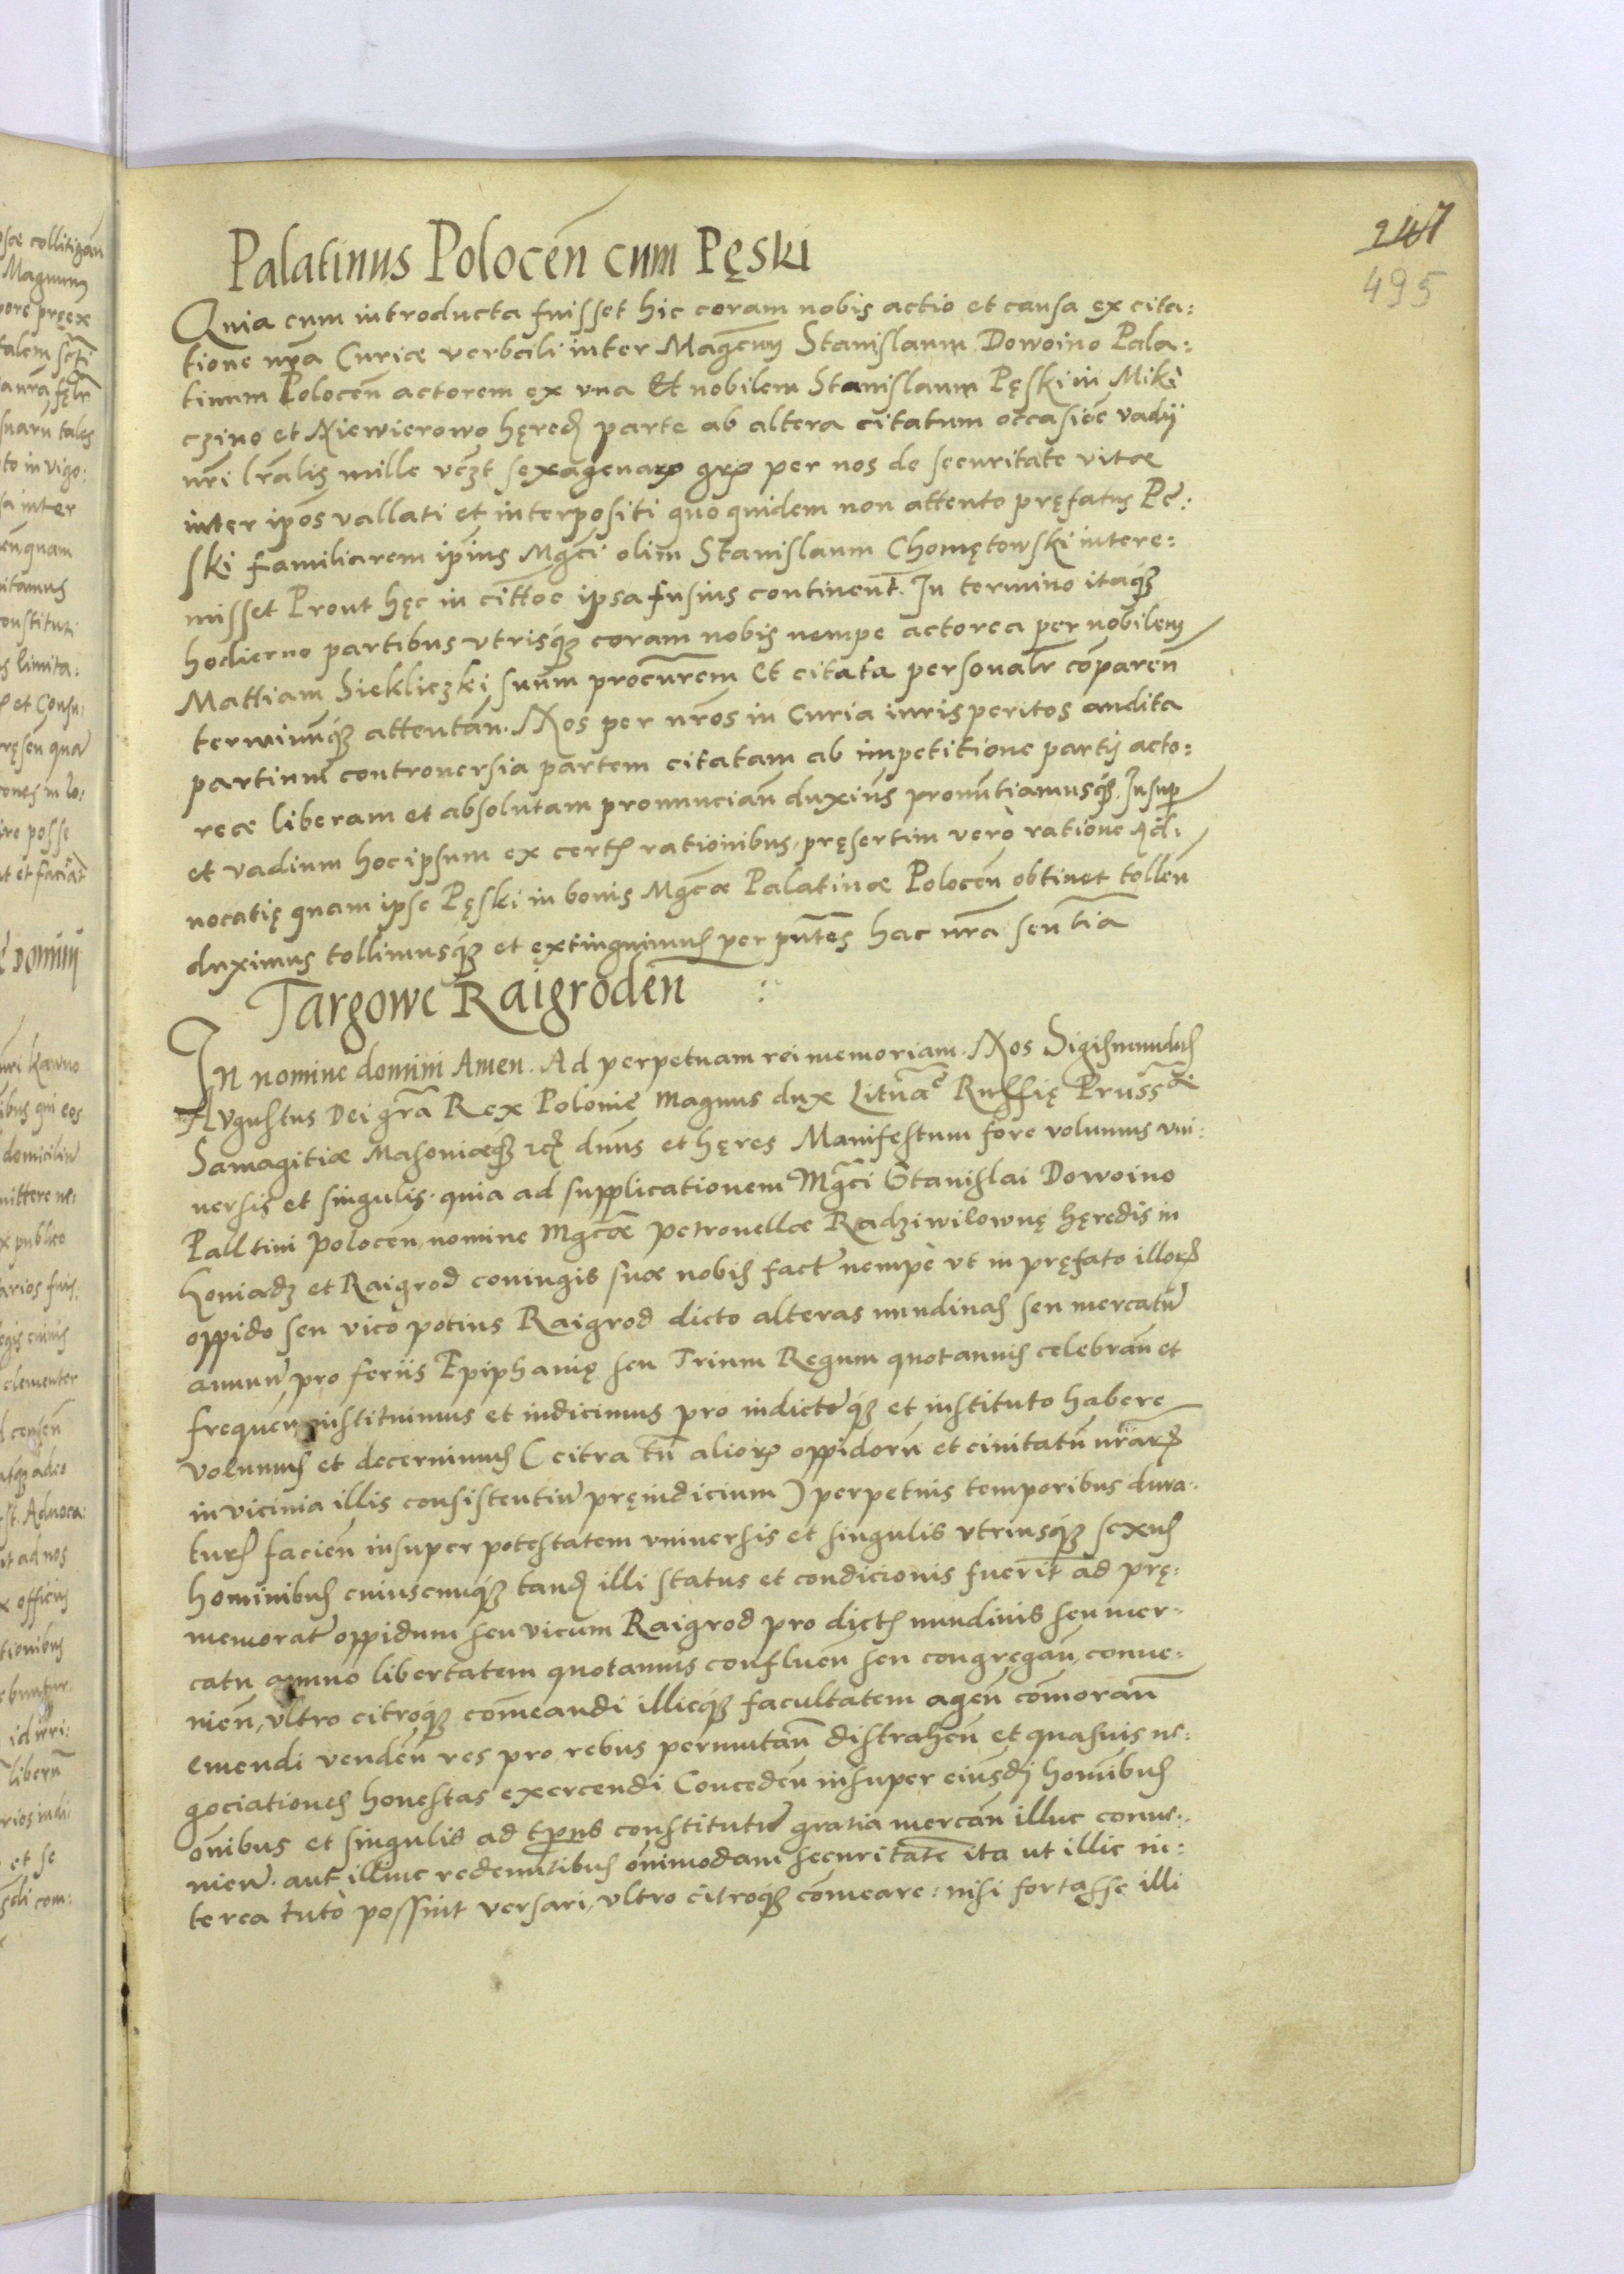 247
495
Palatinus Polocen̄ cum Pęski
Quia cum introducta fuisset hic coram nobis actio et causa ex cita:
tione nr̄a Curiæ verbali inter Mag̅cum Stanislaum Dowoino Pala:
tinum Polocen̄ actorem ex vna Et nobilem Stanislaum Pęski in Miki
czino et Niewierowo hęred parte ab altera citatum occasiōe vadij
nr̄i lr̄alis mille vc̄zt sexagenarꝝ grꝝ per nos de securitate vitæ
inter ip̄os vallati et interpositi quo quidem non attento pręfatus Pę:
ski familiarem ip̄ius Mgc̄i olim Stanislaum Chomętowski intere:
misset Prout hęc in citt̄oe ipsa fusius continent̄. In termino itaq́ꝫ
hodierno partibus vtrisq́ꝫ coram nobis nempe actorea per nobilem
Mattiam Siekliczki suum procur̄em Et citata personalr̄ comparen̄
terminūq́ꝫ attentan̄. Nos per nr̄os in Curia iurisperitos audita
partium controuersia partem citatam ab impetitione partis acto:
reæ liberam et absolutam pronuncian̄ duxim̄s pronūtiamusq́ꝫ. Insup
et vadium hoc ipsum ex certis rationibus, pręsertim verò ratione Ad:
uocatię quam ipse Pęski in bonis Mgc̄æ Palatinæ Polocen̄ obtinet tollen̄
duximus tollimusq́ꝫ et extinguimus per pn̄tes hac nr̄a sen tīa
Targowe Raigroden̄ :
In nomine domini Amen. Ad perpetuam rei memoriam. Nos Sigismundus
Augustus Dei gr̄a Rex Polonie Magnus dux Litūæ Russię Prussiæ
Samagitiæ Masouiæqꝫ etc dn̄us et hęres Manifestum fore volumus vni:
uersis et singulis, quia ad supplicationem Mgc̄i Stanislai Dowoino
Palltini Polocen̄, nomine Mgc̄æ Petronellæ Radziwilownę hęredis in
Koniadz et Raigrod coniugis suæ nobis fact̄ nempè vt in pręfato illorꝝ
oppido seu vico potius Raigrod dicto alteras nundinas seu mercatū
annuū pro feriis Epiphanię seu Trium Regum quotannis celebran̄ et
frequen̄ instituimus et indicimus pro indictoq́ꝫ et instituto habere
volumus et decernimus (citra tn̄ aliorꝝ oppidorū et ciuitatū nr̄arꝝ
in vicinia illis consistentiū pręiudicium) perpetuis temporibus dura:
turꝭ facien̄ insuper potestatem vniuersis et singulis vtriusq́ꝫ sexus
hominibus cuiuscunq́ꝫ tandē illi status et condicionis fuerīt ad prę:
memorat̄ oppidum seu vicum Raigrod pro dictis nundinis seu mer:
catu annuo libertatem quotannis confluen̄ seu congregan̄, conue:
nien̄, vltro citroq́ꝫ com̄eandi illicq́ꝫ facultatem agen̄ com̄oran̄
emendi venden̄ res pro rebus permutan̄ distrahen̄ et quasuis ne:
gociationes honestas exercendi Conceden̄ insuper eiusdē homībus
om̄ibus et singulis ad tp̄us constitutū gratia mercan̄ illuc conue:
nien̄. aut illinc redeuntibus om̄imodam securitatē ita ut illic in:
terea tutò possint versari, vltro citroq́ꝫ com̄eare: nisi fortasse illi